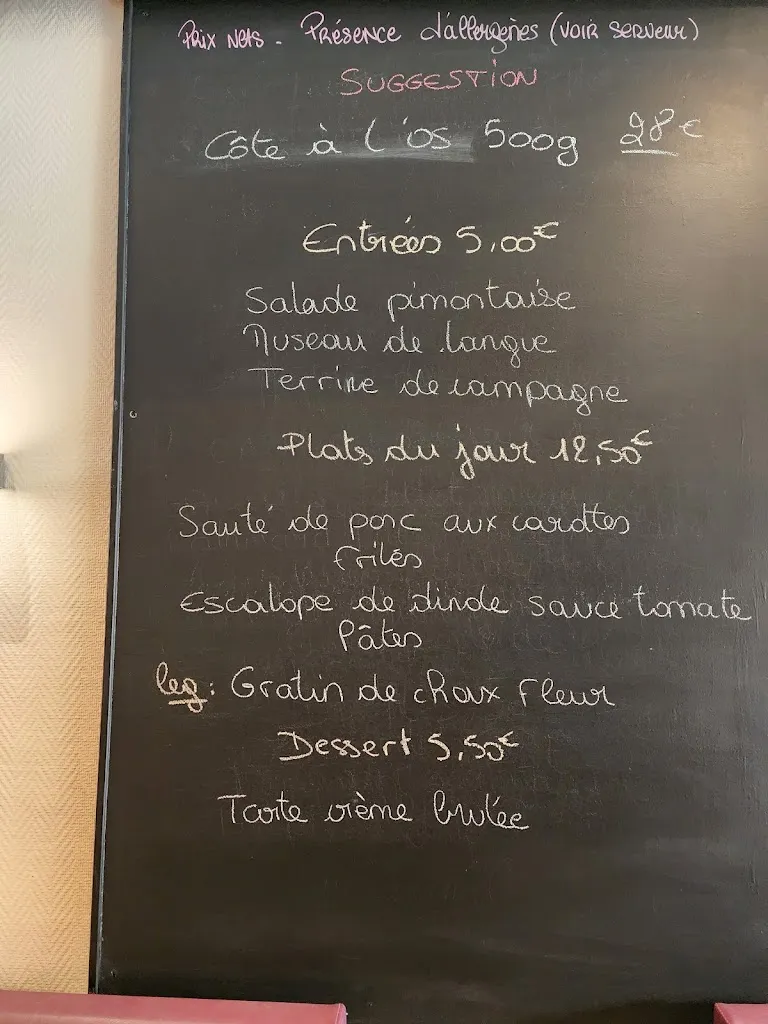 Prix nets - Présence d'allergènes (voir serveur)
SUGGESTION
Côte à l'os 500g 28€
Entrées 5,00€
Salade pimontaise
Museau de langue
Terrine de campagne
Plats du jour 12,50€
Sauté de porc aux carottes
frites
Escalope de dinde sauce tomate
Pâtes
leg: Gratin de choux Fleur
Dessert 5,50€
Tarte crème brulée